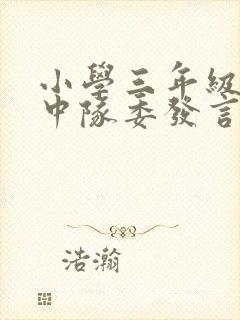 小學三年級
中隊委發言
浩瀚